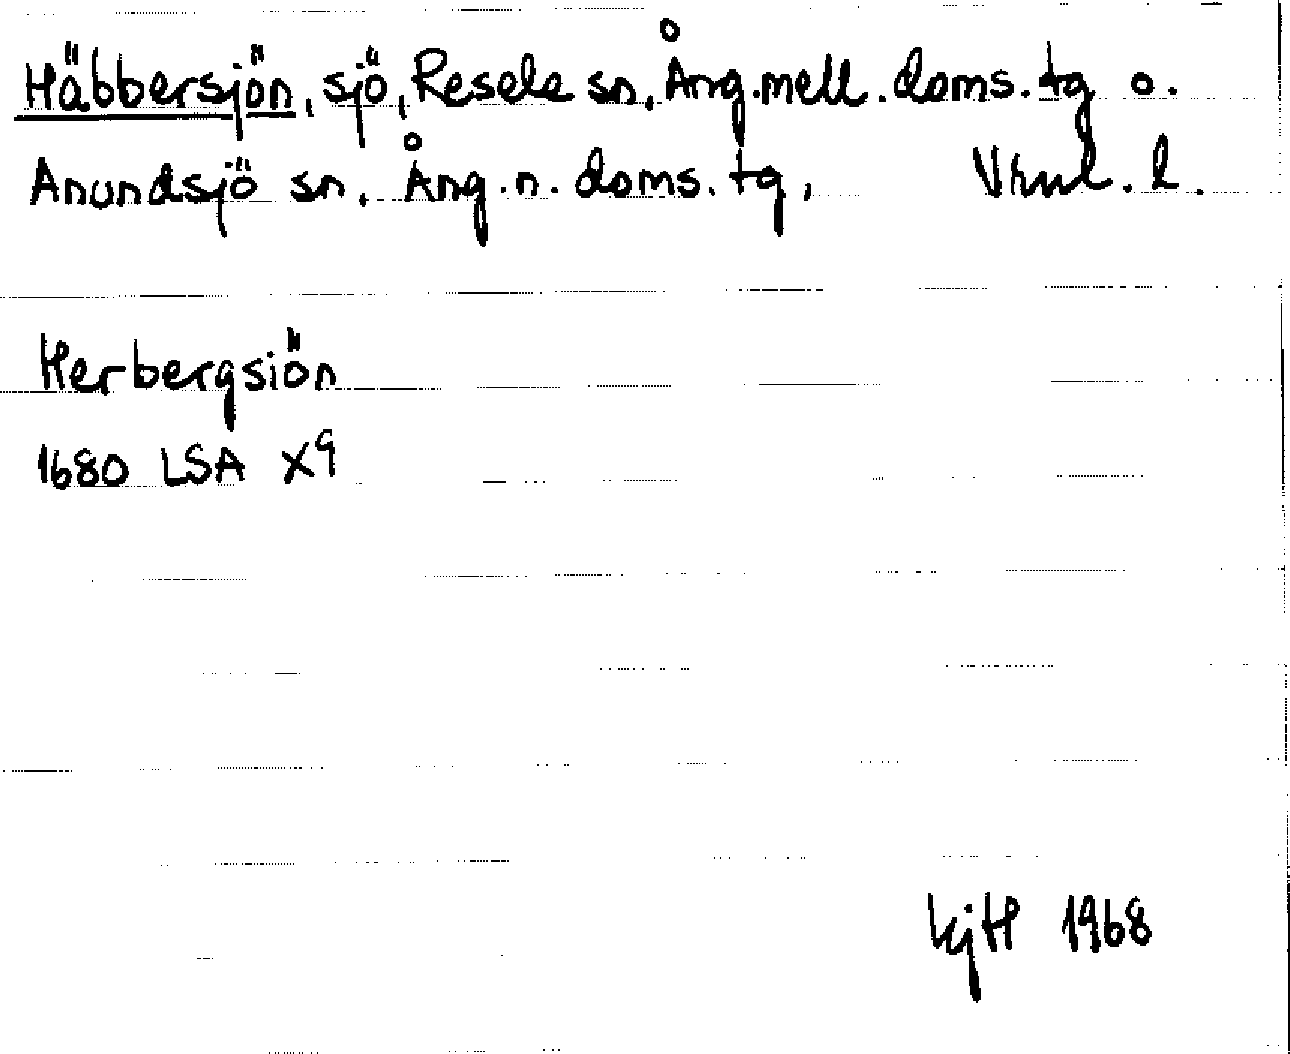 Häbbersjön, sjö, Resele sn, Ång.mell.doms.tg o.
Anundsjö sn, Ång.n.doms.tg, Vnl. l.
Herbergsiön
1680 LSA X9
KjH 1968